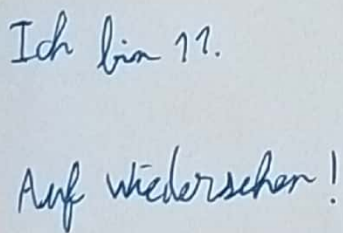 Ich bin 11.
Auf wiedersehen!